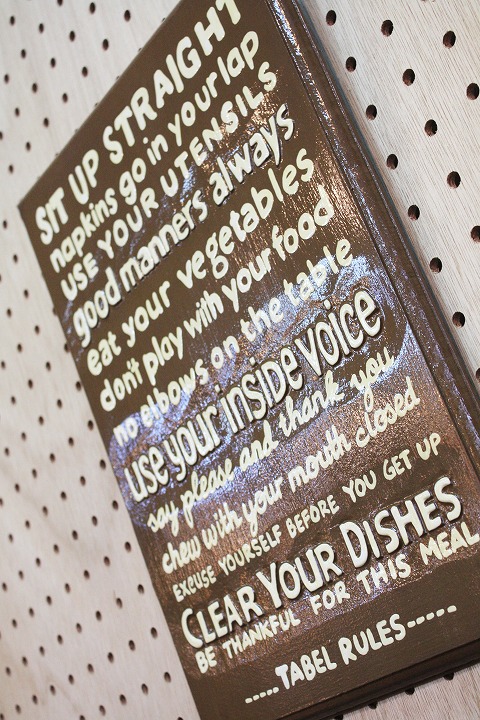 SIT UP STRAIGHT
napkins go in your lap
USE YOUR UTENSILS
good manners always
eat your vegetables
don't play with your food
no elbows on the table
use your inside voice
say please and thank you
chew with your mouth closed
EXCUSE YOURSELF BEFORE YOU GET UP
CLEAR YOUR DISHES
BE THANKFUL FOR THIS MEAL
.....TABEL RULES.....